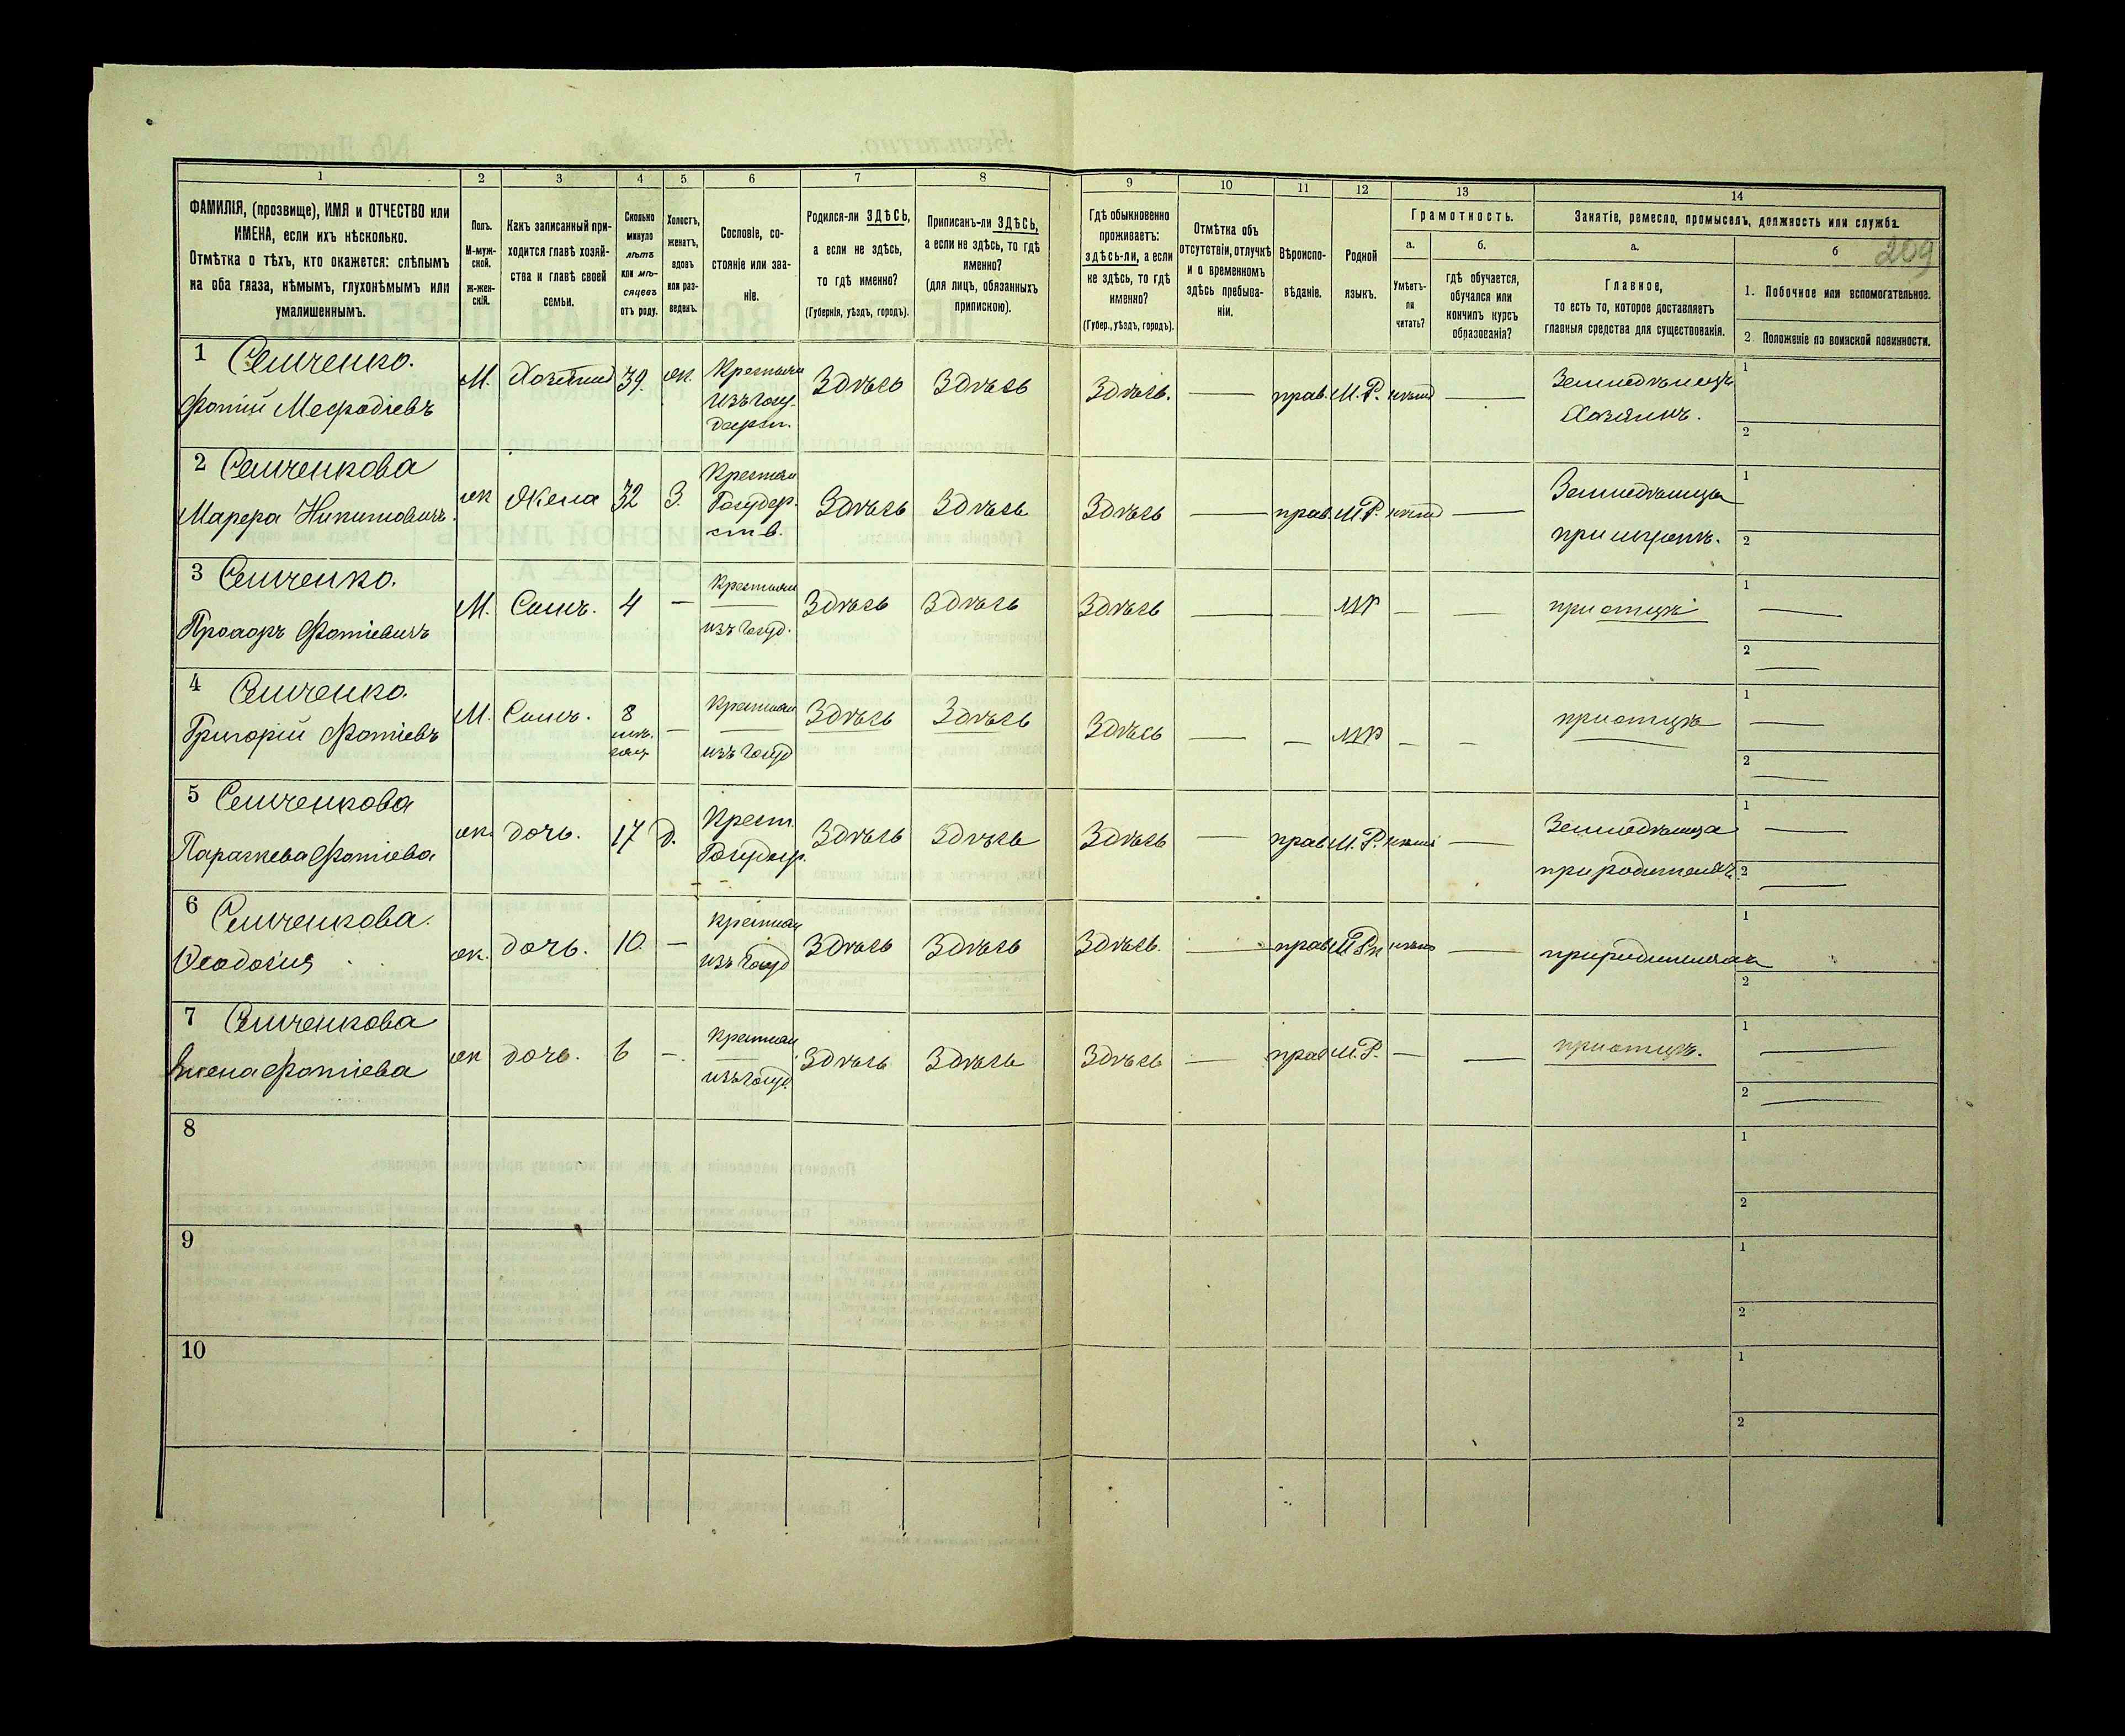 209
1 2 3 4 5 6 7 8 9 10 11 12 13 14
ФАМИЛІЯ, (прозвище), ИМЯ и ОТЧЕСТВО или
ИМЕНА, если ихъ нѣсколько.
Отмѣтка о тѣхъ, кто окажется: слѣпымъ
на оба глаза, нѣмымъ, глухонѣмымъ или
умалишеннымъ.
Полъ.
М-муж-
ской.
ж-жен-
скій.
Какъ записанный при-
ходится главѣ хозяй-
ства и главѣ своей
семьи.
Сколько
минуло
лѣтъ
или мѣ-
сяцевъ
отъ роду.
Холостъ,
женатъ,
вдовъ
или раз-
веденъ.
Сословіе, со-
стояніе или зва-
ніе.
Родился-ли ЗДѢСЬ,
а если не здѣсь,
то гдѣ именно?
(Губернія, уѣздъ, городъ).
Приписанъ-ли ЗДѢСЬ,
а если не здѣсь, то гдѣ
именно?
(для лицъ, обязанныхъ
припискою).
Гдѣ обыкновенно
проживаетъ:
здѣсь-ли, а если
не здѣсь, то гдѣ
именно?
(Губер., уѣздъ, городъ).
Отмѣтка объ
отсутствіи, отлучкѣ
и о временномъ
здѣсь пребыва-
ніи.
Вѣроиспо-
вѣданіе.
Родной
языкъ.
Грамотность.
а.
Умѣетъ-
ли
читать?
б.
гдѣ обучается,
обучался или
кончилъ курсъ
образованія?
Занятіе, ремесло, промыселъ, должность или служба.
а.
Главное,
то есть то, которое доставляетъ
главныя средства для существованія.
б
1. Побочное или вспомогательное.
2. Положеніе по воинской повинности.
1 Семченко.
Фотій Мефодіевъ
М. Хозяинъ 39. ж. Крестьян
Изъ Госу-
дарст.
Здѣсь Здѣсь Здѣсь. — прав. М.Р. нѣтъ —
Земледѣлецъ
Хозяинъ.
1
2
2 Семченкова
Марфа Никитовичъ.
ж Жена 32 З. Крестьян
Государ-
ств.
Здѣсь Здѣсь Здѣсь — прав. М.Р. нѣтъ —
Земледѣлица
при мужѣ.
1
2
3 Семченко.
Фотіевичъ
М. Сынъ. 4 — Крестьян
изъ Госуд.
Здѣсь Здѣсь Здѣсь — — МР — —
при отцѣ
1 —
2 —
4 Семченко.
Григорій Фотіевъ
М. Сынъ. 8
мѣ-
сяц
— Крестьян
изъ Госуд
Здѣсь Здѣсь Здѣсь — — МР — —
при отцѣ
1 —
2 —
5 Семченкова
Параскева Фотіева
ж. дочь. 17 д. Крест.
Государ.
Здѣсь Здѣсь Здѣсь — прав М.Р. нѣтъ —
Земледѣлица
при родителяхъ
1 —
2 —
6 Семченкова.
Феодосія
ж. дочь. 10 — крестьян
изъ Госуд
Здѣсь Здѣсь Здѣсь. — прав нѣтъ —
при родителяхъ
1
2
7 Семченкова
Елена Фотіева
ж дочь. 6 — Крестьян
изъ Госуд.
Здѣсь Здѣсь Здѣсь — прав М.Р. — —
при отцѣ.
1 —
2 —
8
1
2
9
1
2
10
1
2